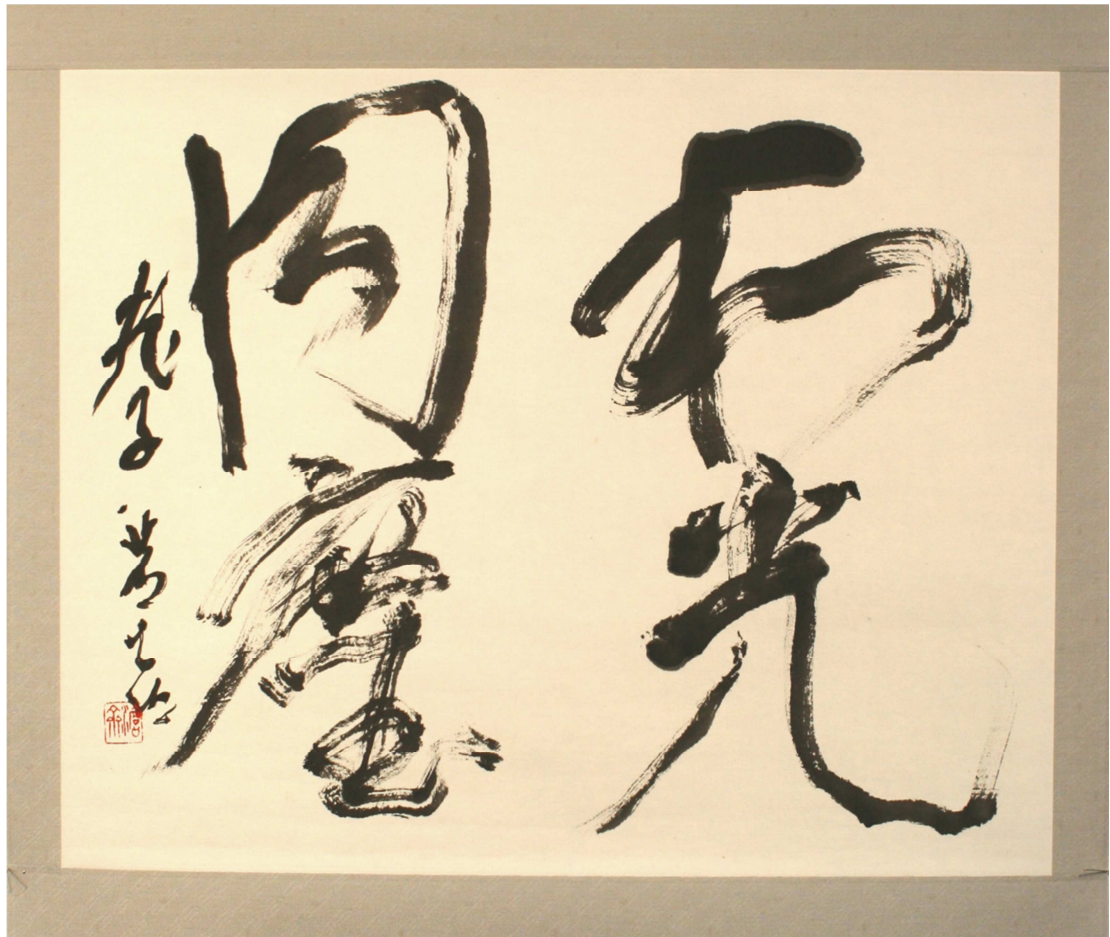 和光
同塵
老子